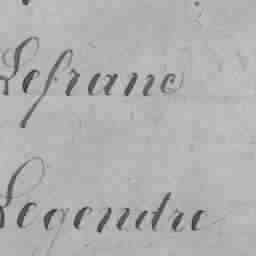 Lefranc
Legendre